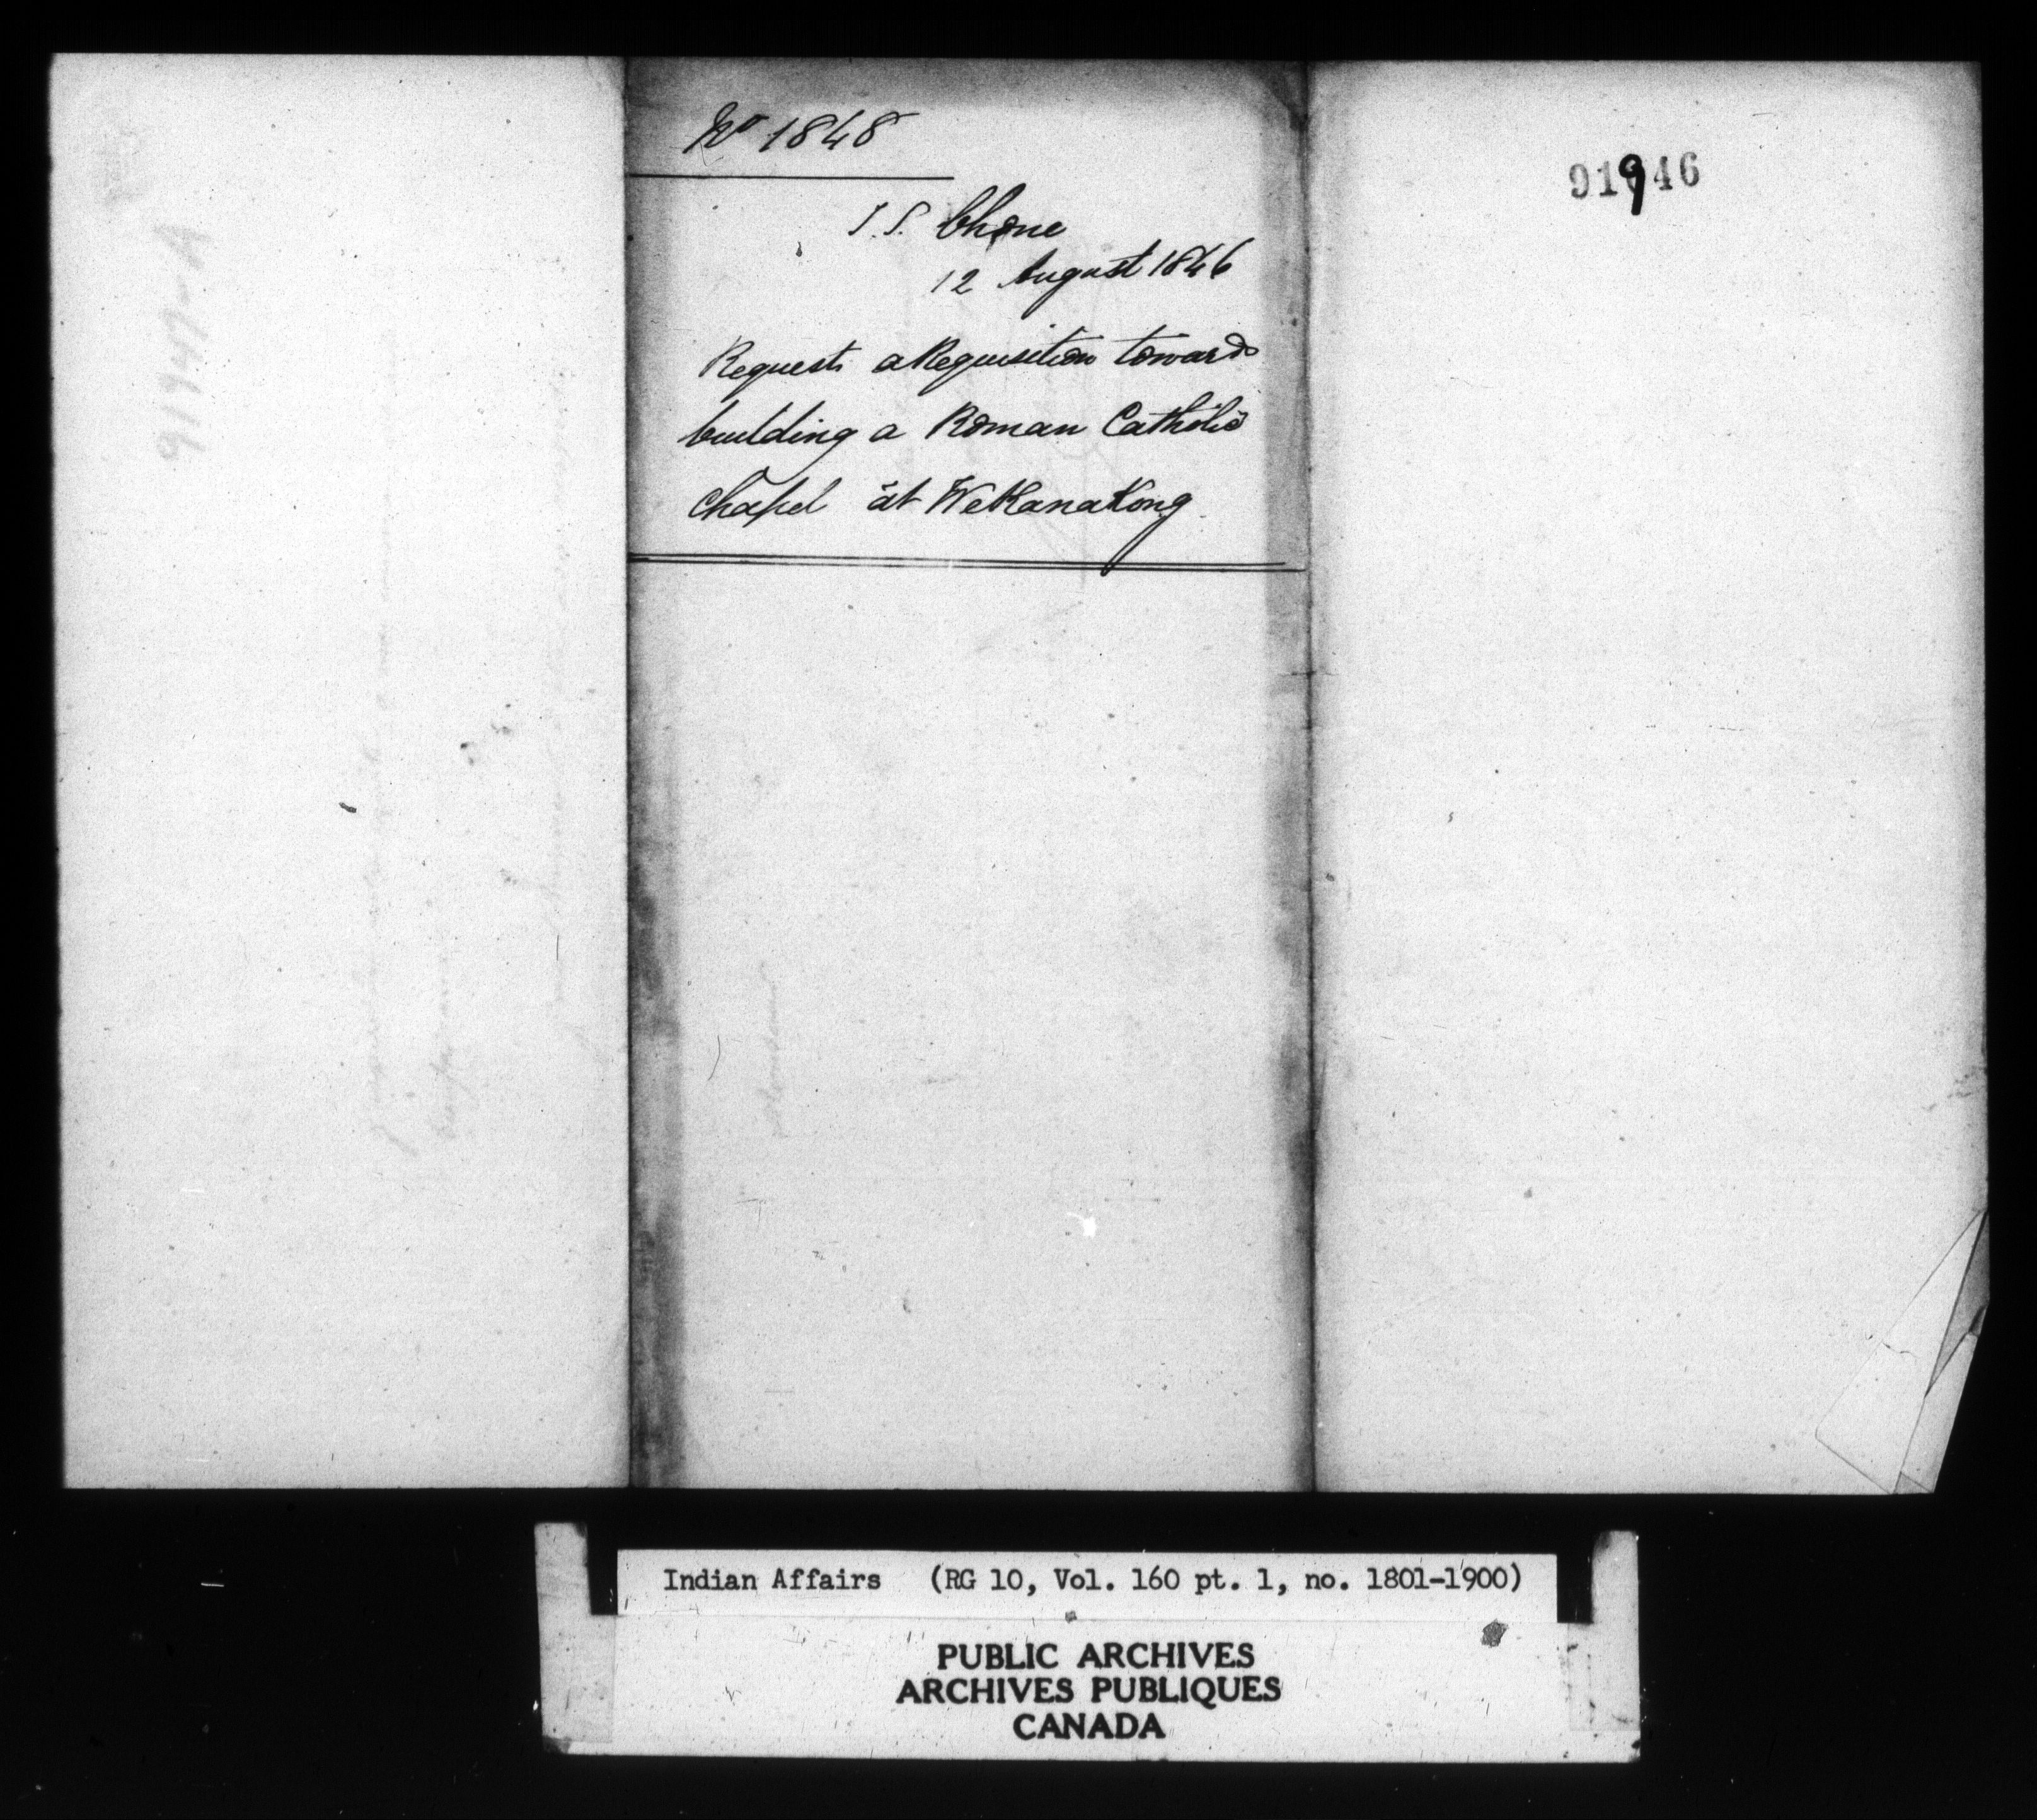 No 1848
J.S. Chone
12 August 1846
Requests a Requisition towards
building a Roman Catholic
Chapel at Wekanakong
91946
91947-A
Indian Affairs (RG 10, Vol. 160 pt. 1, no. 1801-1900)
PUBLIC ARCHIVES
ARCHIVES PUBLIQUES
CANADA